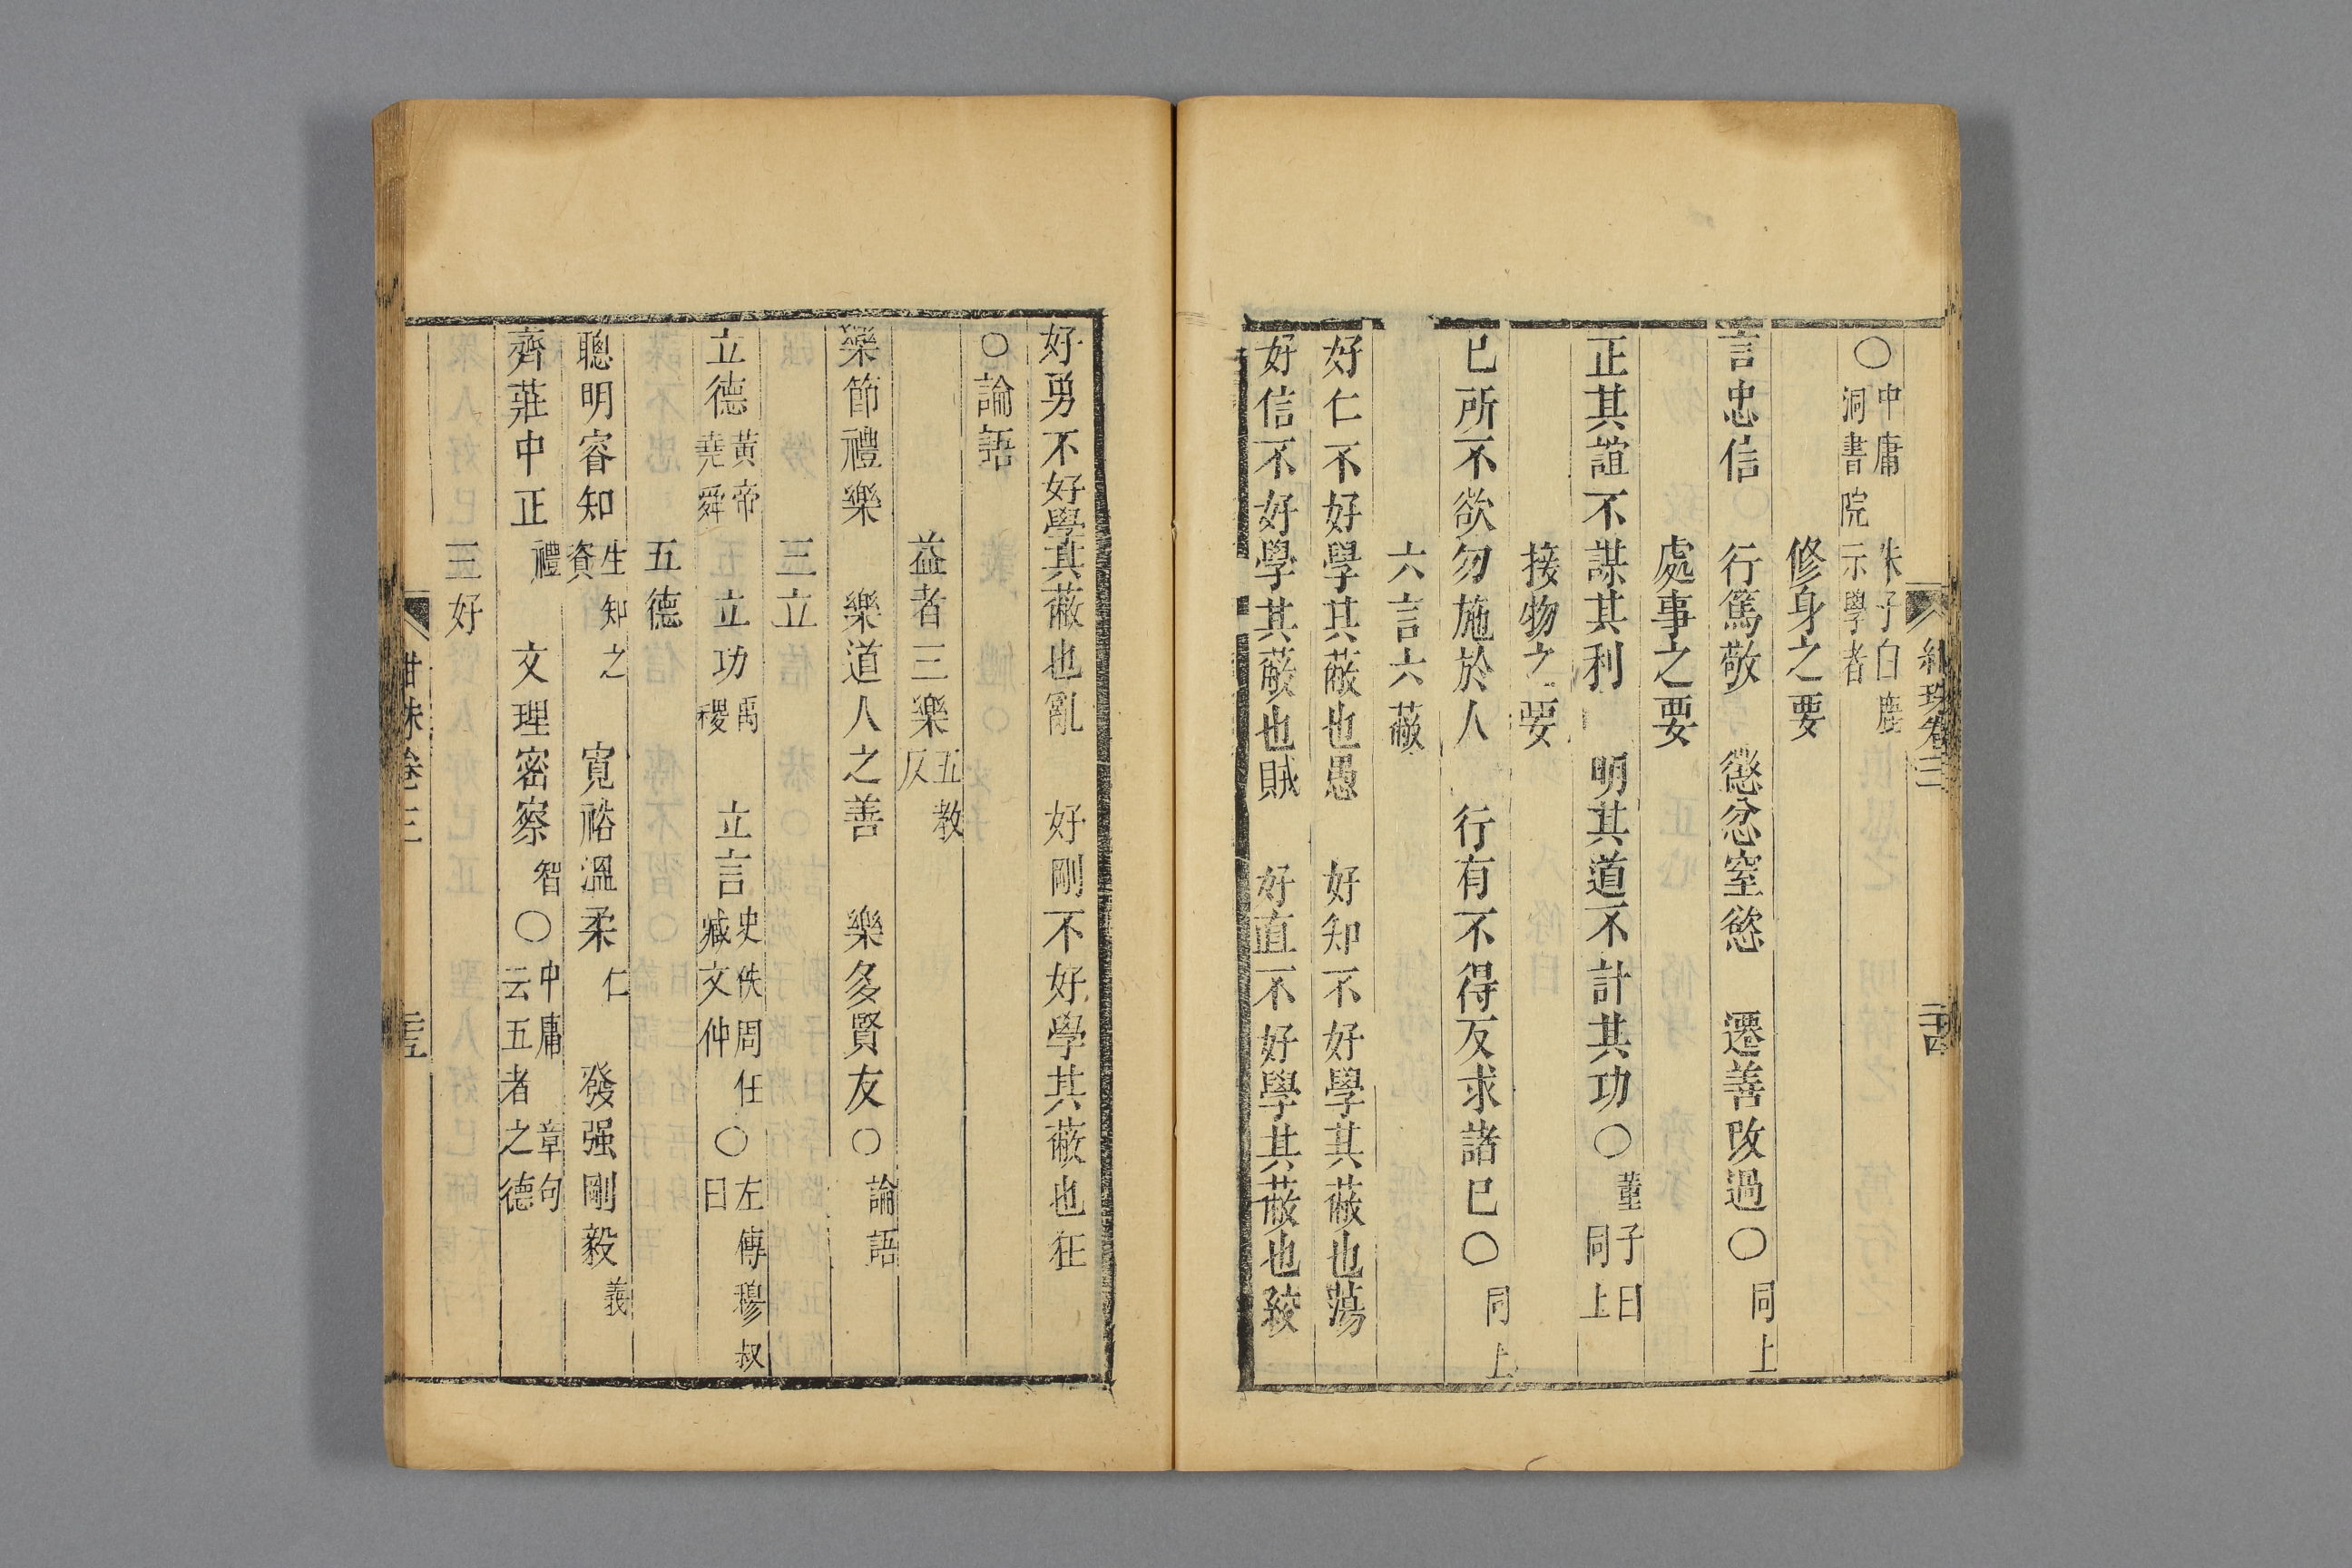 紺珠卷三　二十四
○中庸　朱子白鹿
洞書院示學者
修身之要
言忠信　行篤敬　懲忿窒慾　遷善改過○同上
處事之要
正其誼不謀其利　明其道不計其功○董子曰
同上
接物之要
己所不欲勿施於人　行有不得反求諸己○同上
六言六蔽
好仁不好學其蔽也愚　好知不好學其蔽也蕩
好信不好學其蔽也賊　好直不好學其蔽也絞
好勇不好學其蔽也亂　好剛不好學其蔽也狂
○論語
益者三樂五教
反
樂節禮樂　樂道人之善　樂多賢友○論語
三立
立德黃帝
堯舜　立功禹
稷　立言史佚周任
臧文仲○左傳穆叔
曰
五德
聰明睿知生知之
資　寬裕溫柔仁　發强剛毅義
齊莊中正禮　文理密察智○中庸章句
云五者之德
三好
紺珠卷三